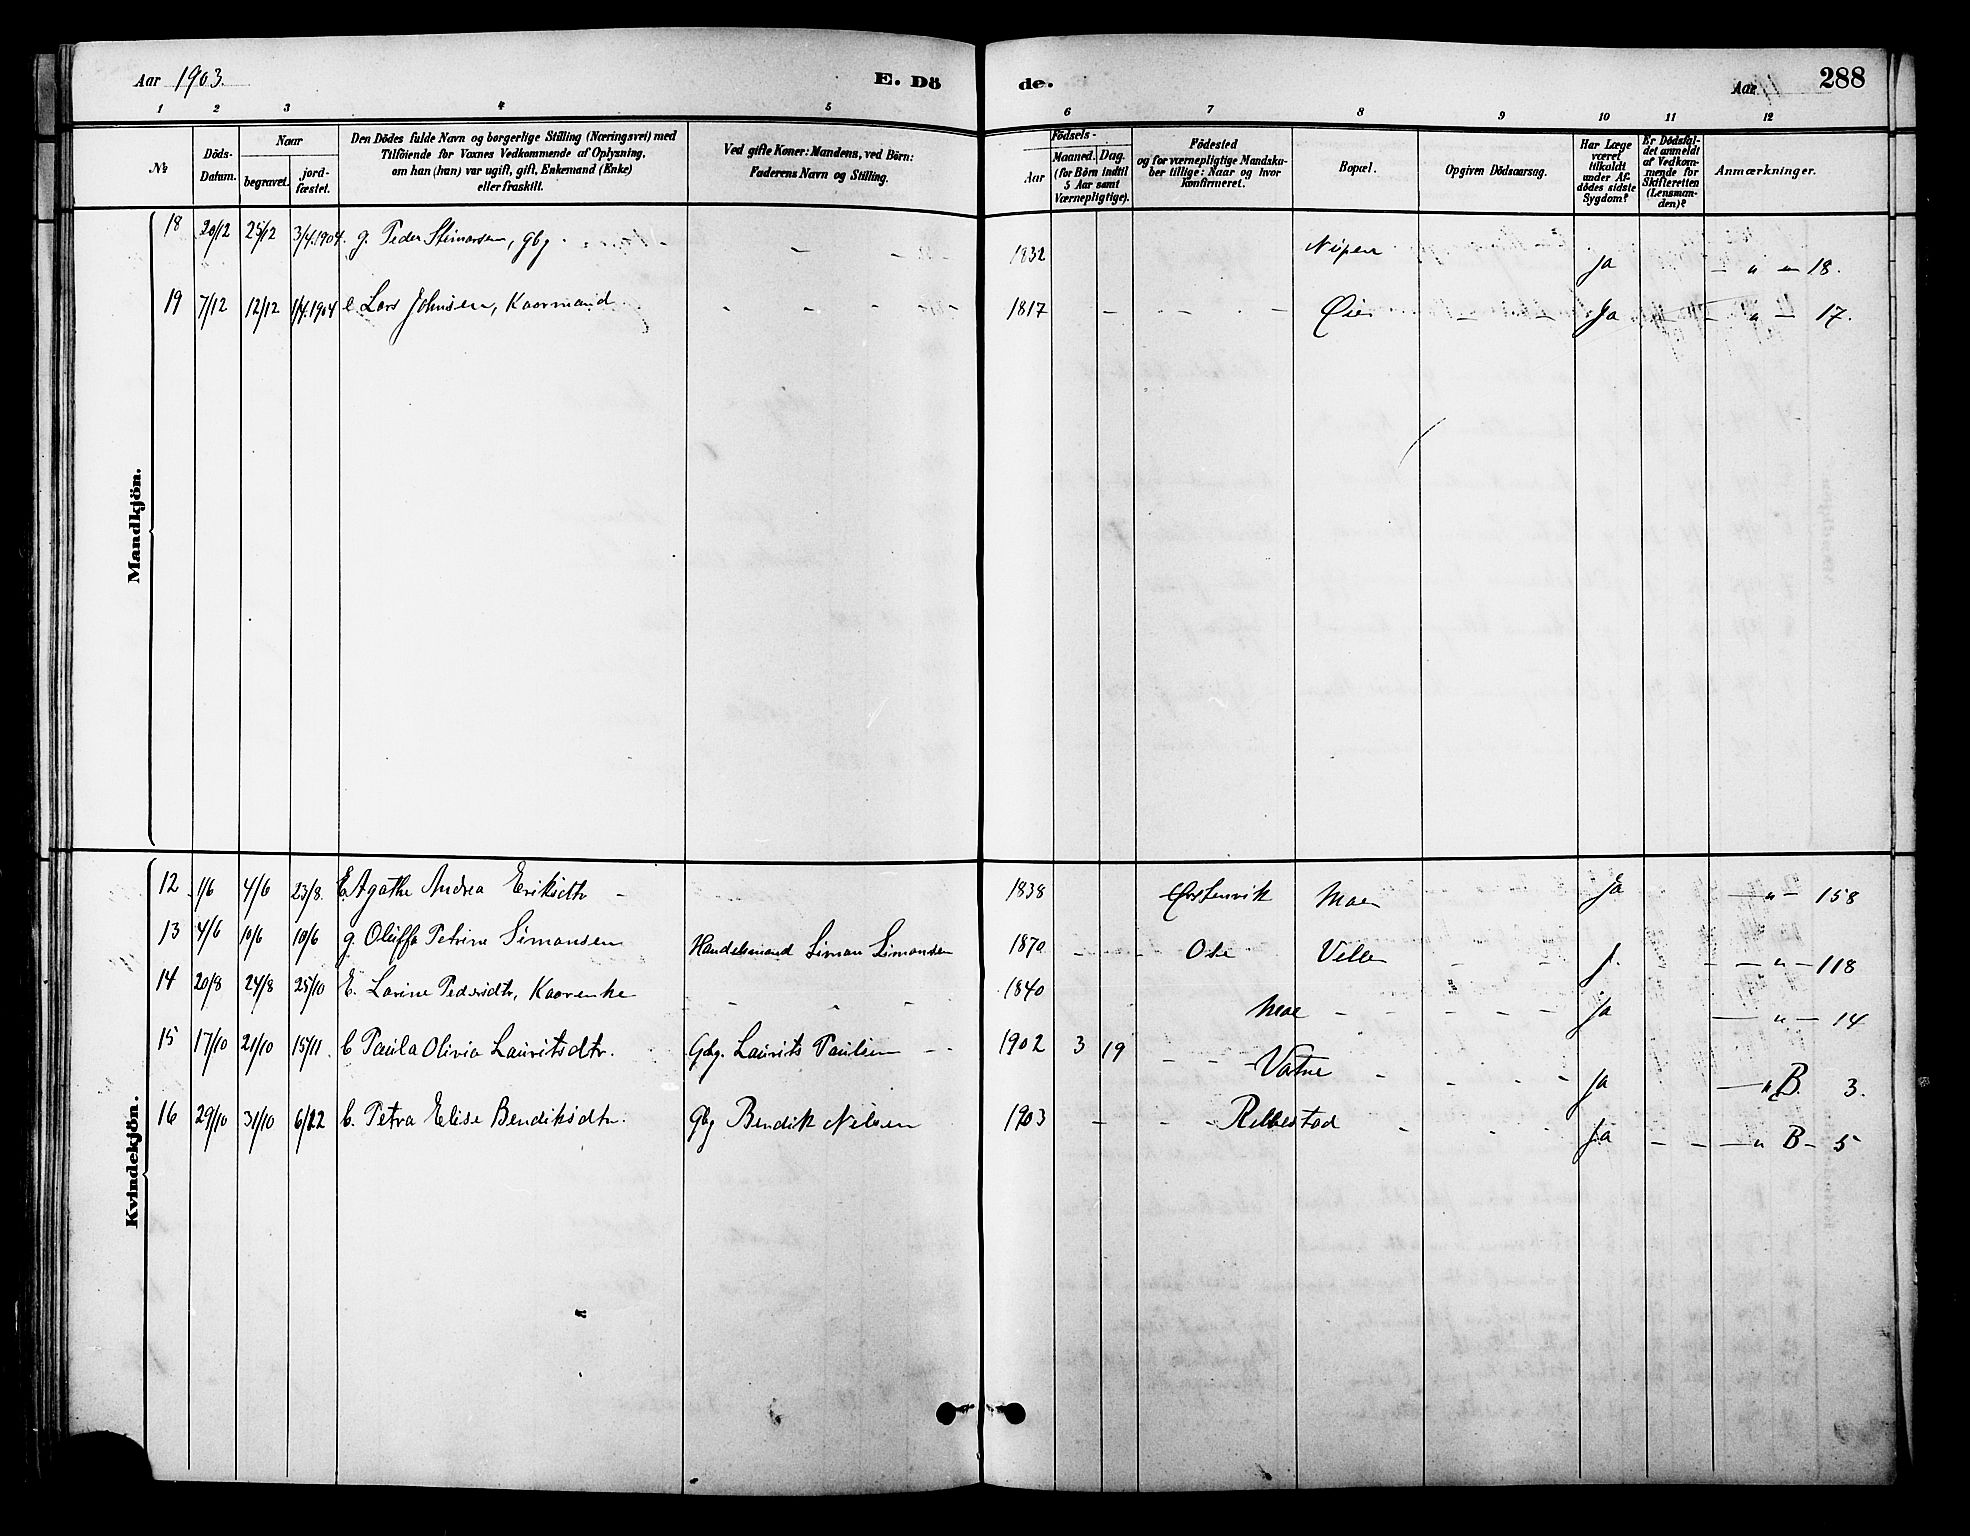 Aar 1903.
E. Dö
de.
Aar
288
1 2 3 4 5 6 7 8 9 10 11 12
№
Döds-
Datum.
Naar
begravet.
jord-
fæstet.
Den Dödes fulde Navn og borgerlige Stilling (Næringsvei) med
Tilföiende for Voxnes Vedkommende af Oplysning,
om han (hun) var ugift, gift, Enkemand (Enke)
eller fraskilt.
Ved gifte Koner: Mandens, ved Börn:
Faderens Navn og Stilling.
Födsels-
Aar
Maaned.
Dag.
(for Börn indtil
5 Aar samt
Værnepligtige).
Födested
og for værnepligtige Mandska-
ber tillige: Naar og hvor
konfirmeret.
Bopæl.
Opgiven Dödsaarsag.
Har Læge
været
tilkaldt
under Af-
dödes sidste
Sygdom?
Er Dödsfal-
det anmeldt
af Vedkom-
mende for
Skifteretten
(Lensman-
den)?
Anmærkninger.
Mandkjön.
18 20/12 25/12 3/4.1904. g. Peder , gbg. - - 1832 Ja - " - 18.
19 7/12 12/12 1/4.1904 e Lars Johnsen, Kaarmand. - - - - 1817 - - - - - - Ja - " - 17.
Kvindekjön.
12. 1/6 4/6 23/8. E. Agathe Andrea Eriksdtr - 1838 Ørstenvik Moe Ja - " - 158
13 4/6 10/6 10/6 g. Oluffa Petrine Simonsen Handelsmand Simon Simonsen 1870 - - Ose - - J. - - " - 118
14 20/8 24/8 25/10 E. Larine Pedersdtr, Kaarenke - - - 1840 Moe - - - - Ja - " - 14
15 17/10 21/10 15/11. b Paula Olivia Lauritsdtr. Gbg. Laurits Paulsen - - 1902 3 19 - - - Vatne - - - - Ja - " B. 3.
16 29/10 31/10 6/12 b. Petra Elise Bendiksdtr. Gbg Bendik Nilsen 1903 - - - - - - Ja - - - " B - 5